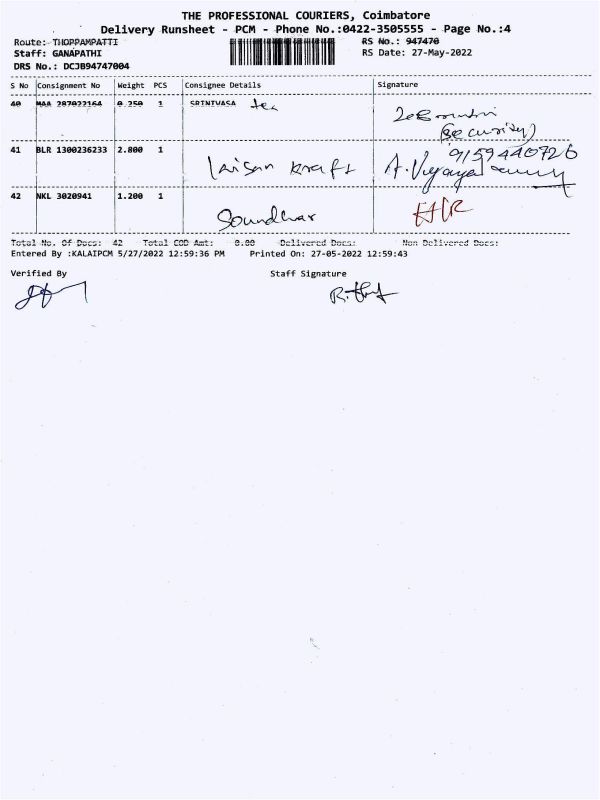 THE PROFESSIONAL COURIERS, Coimbatore
Delivery Runsheet - PCM - Phone No.:0422-3505555 - Page No.:4
Route: THOPPAMPATTI RS No.: 947470
Staff: GANAPATHI RS Date: 27-May-2022
DRS No.: DCJB94747004
S No Consignment No Weight PCS Consignee Details Signature
40 MAA 287022164 0.250 1 SRINIVASA tex
(Security)
41 BLR 1300236233 2.800 1 9159440726
kraft A.
42 NKL 3020941 1.200 1
Soundhar
Total No. Of Docs: 42 Total COD Amt: 0.00 Delivered Docs: Non Delivered Docs:
Entered By :KALAIPCM 5/27/2022 12:59:36 PM Printed On: 27-05-2022 12:59:43
Verified By Staff Signature